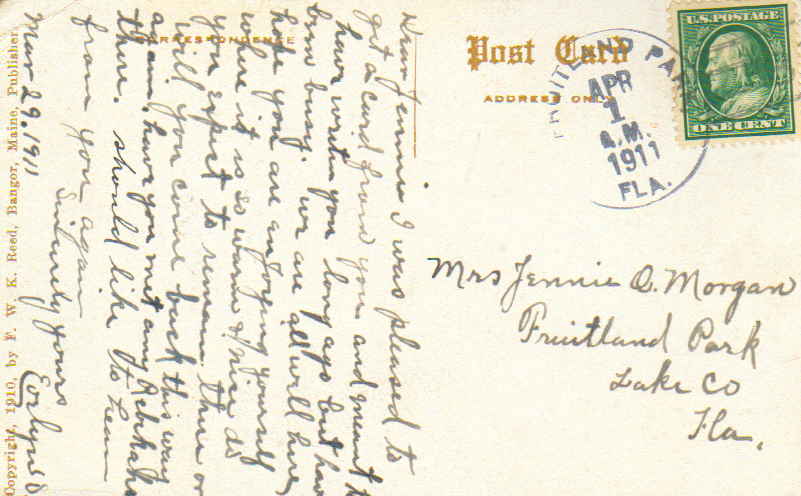 CORRESPONDENCE
Post Card
ADDRESS ONLY
U.S. POSTAGE
ONE CENT
FRUITLAND PARK
APR
1
A.M.
1911
FLA.
Mrs Jennie O. Morgan
Fruitland Park
Lake Co
Fla,
Dear Jennie I was pleased to
get a card from you and meant to
have written you long ago but have
been busy. we are all well here,
hope you are enjoying yourself
where it is so warm & nice do
you expect to remain there or
will you come back this way
again, have you met any Rebekahs
there. should like to hear
from you again
Sincerely yours
Evelyn
Mar 29. 1911
Copyright, 1910, by F. W. K. Reed, Bangor, Maine, Publisher.